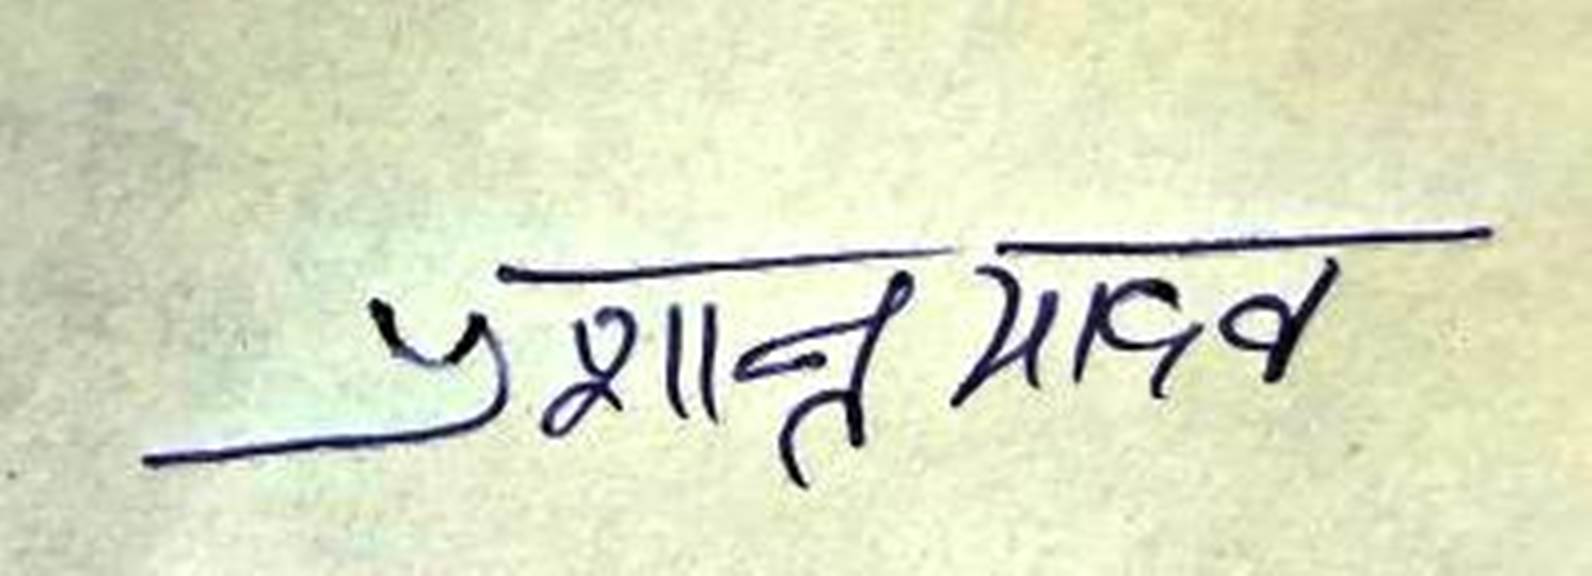 प्रशान्त यादव